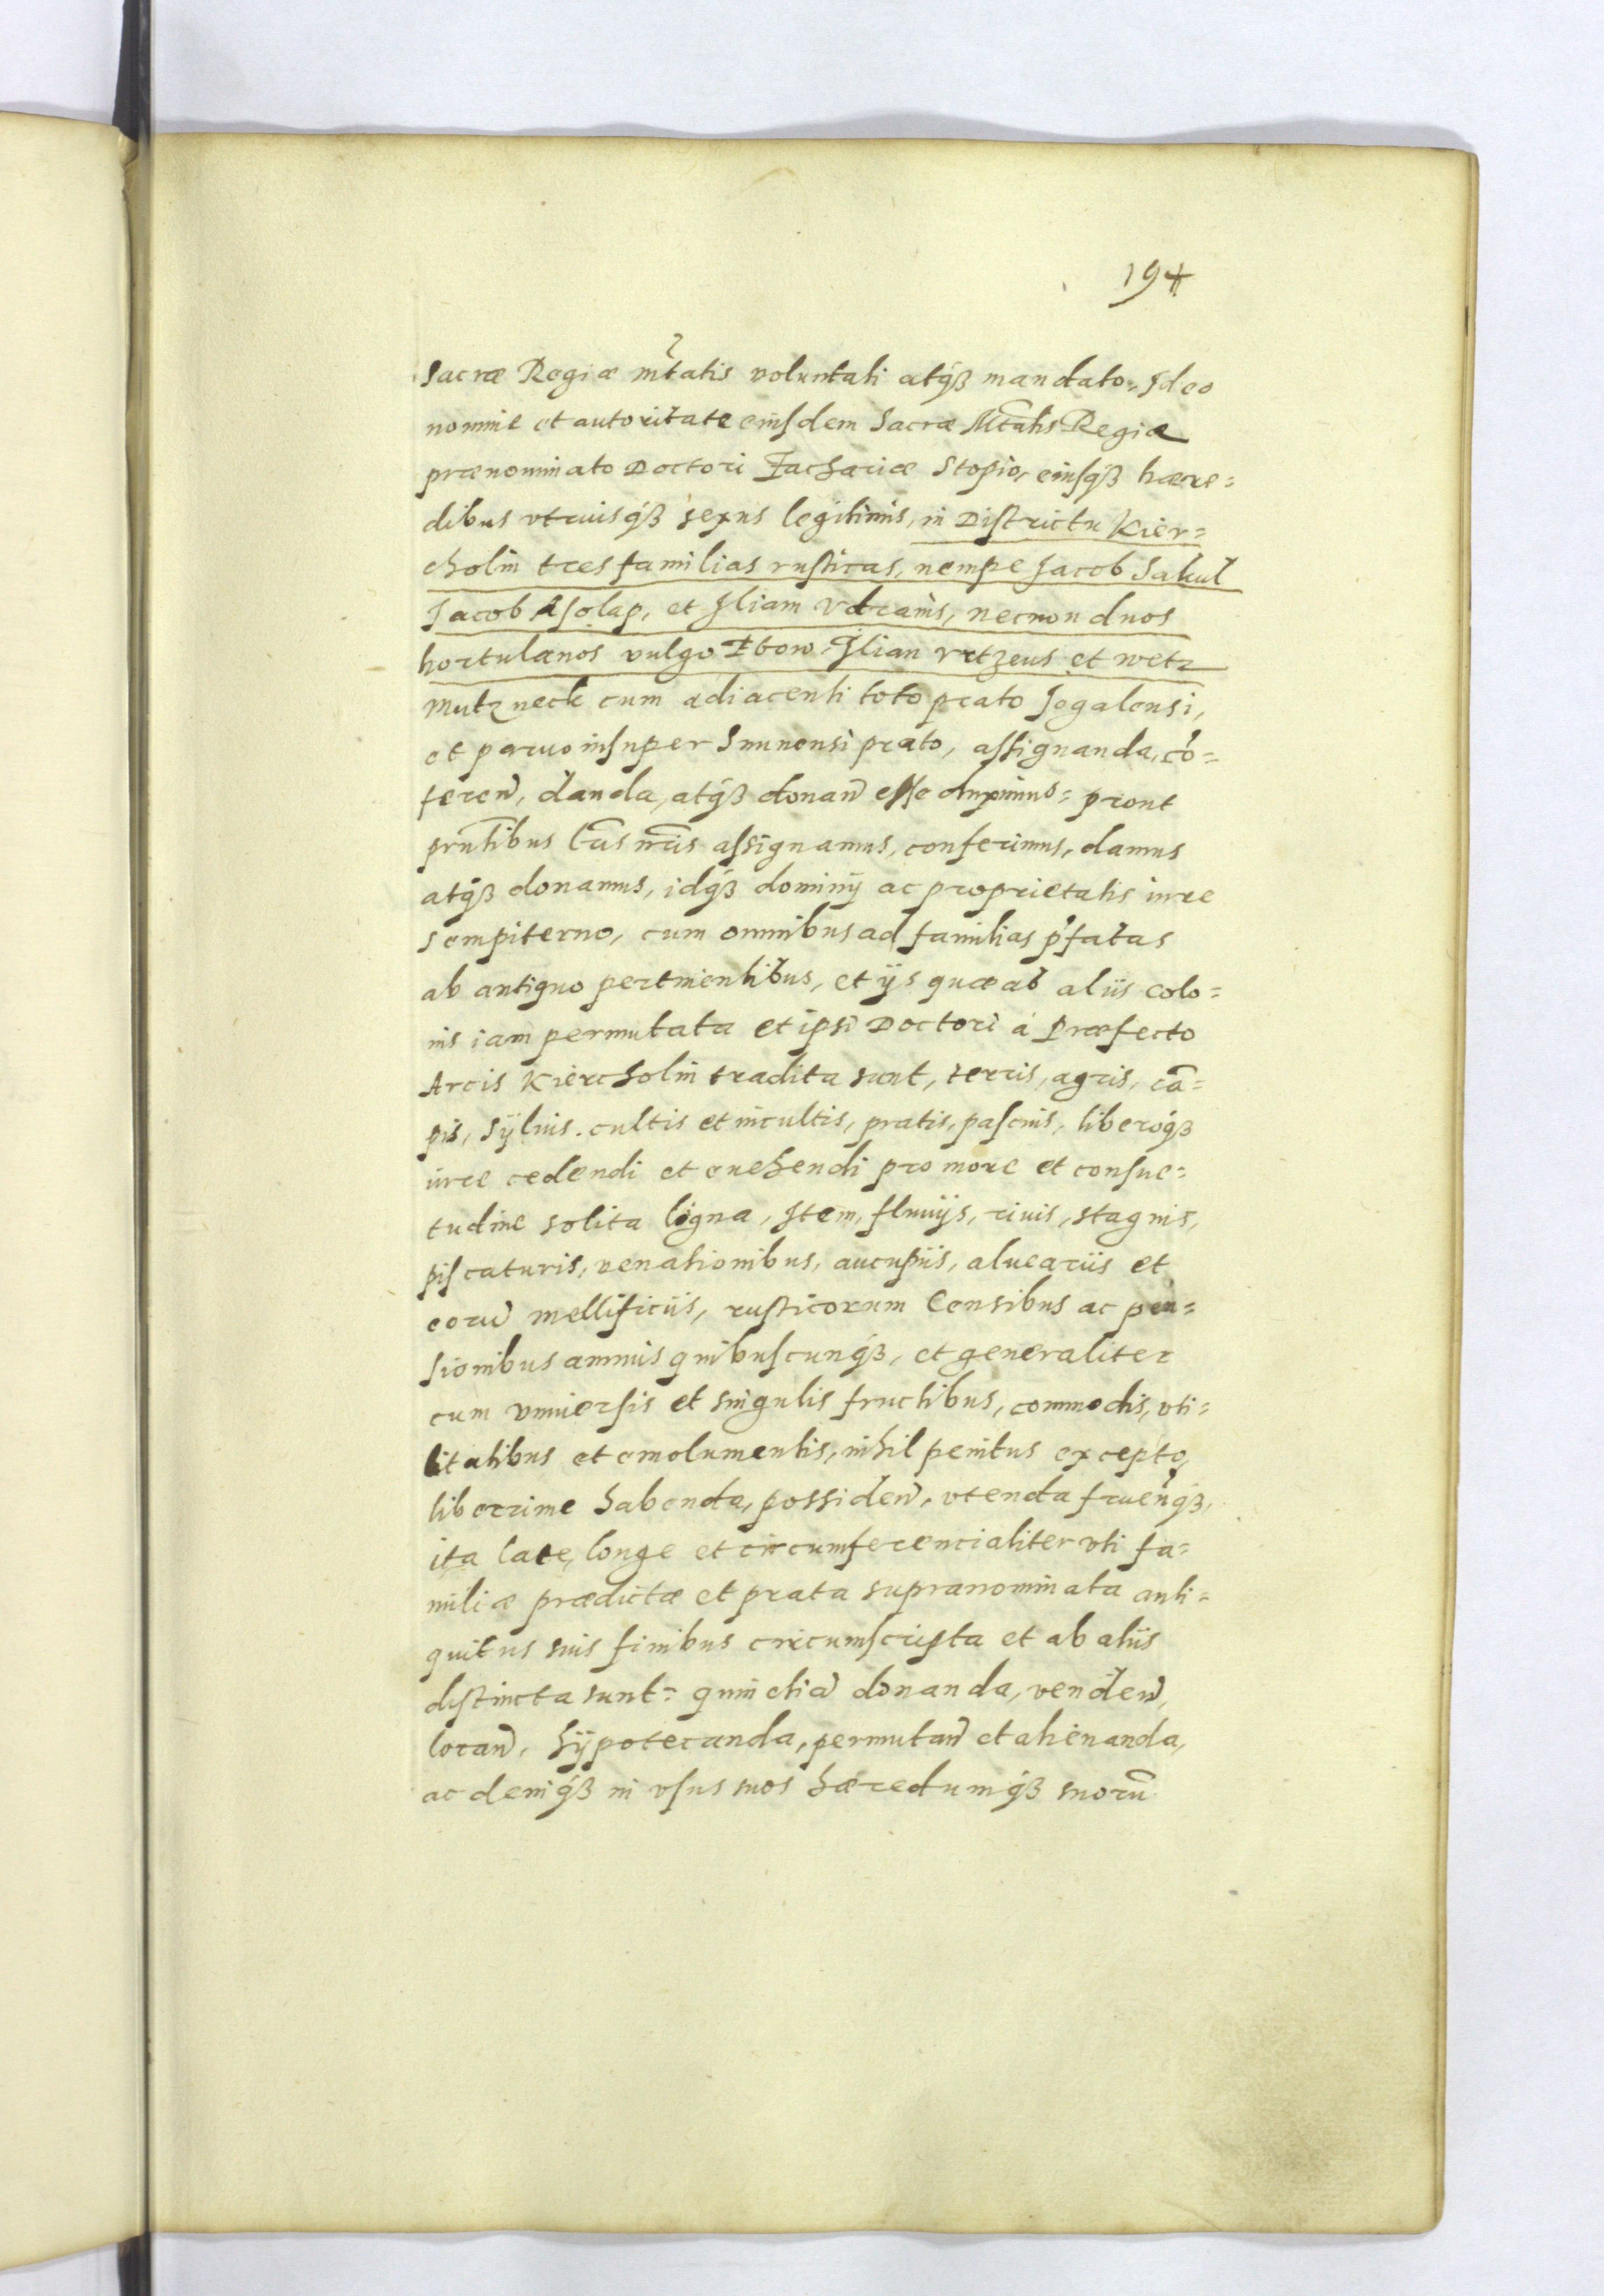 194
Sacræ Regiæ mtatis voluntati atq́ꝫ mandato. Ideo
nomine et autoritate eiusdem Sacræ Mtatis Regiæ
prænominato Doctori Zachariæ Stopio, eiusq́ꝫ hære=
dibus vtriusq́ꝫ sexus legitimis, in Districtu Kier=
cholm tres familias rusticas, nempe Jacob Sakul
Jacob Asolap, et Iliam Vdrams, necnon duos
hortulanos vulgo Ibow Ilian vrtzeus et wetz
Mutzneck cum adiacenti toto prato Jogalensi,
et paruo insuper Smunensi prato, assignanda, cō=
feren̄, danda, atq́ꝫ donan̄ esse duximus= prout
prn̄tibus lr̄is nr̄is assignamus, conferimus, damus
atq́ꝫ donamus, idq́ꝫ dominij ac proprietatis iure
sempiterno, cum omnibus ad familias p̄fatas
ab antiquo pertinentibus, et ijs quæ ab aliis colo=
nis iam permutata et ipsi Doctori á Præfecto
Arcis Kiercholm tradita sunt, terris, agris, cā=
pis, sÿluis. cultis et incultis, pratis, pascuis, liberoq́ꝫ
iure cedendi et euehendi pro more et consue=
tudine solita ligna, Item, fluuijs, riuis, stagnis,
piscaturis, venationibus, aucupiis, alueariis et
eorū mellificiis, rusticorum Censibus ac pen=
sionibus annuis quibuscunq́ꝫ, et generaliter
cum vniuersis et singulis fructibus, commodis, vti=
litatibus et emolumentis, nihil penitus excepto,
liberrime habenda, possiden̄, vtenda fruen̄q́ꝫ,
ita late, longe et circumferencialiter vti fa=
miliæ prædictæ et prata supranominata anti=
quitus suis finibus circumscripta et ab aliis
distincta sunt= quin etiā donanda, venden̄,
locan̄, hÿpotecanda, permutan̄ et alienanda,
ac deniq́ꝫ in vsus suos hæredumq́ꝫ suorū